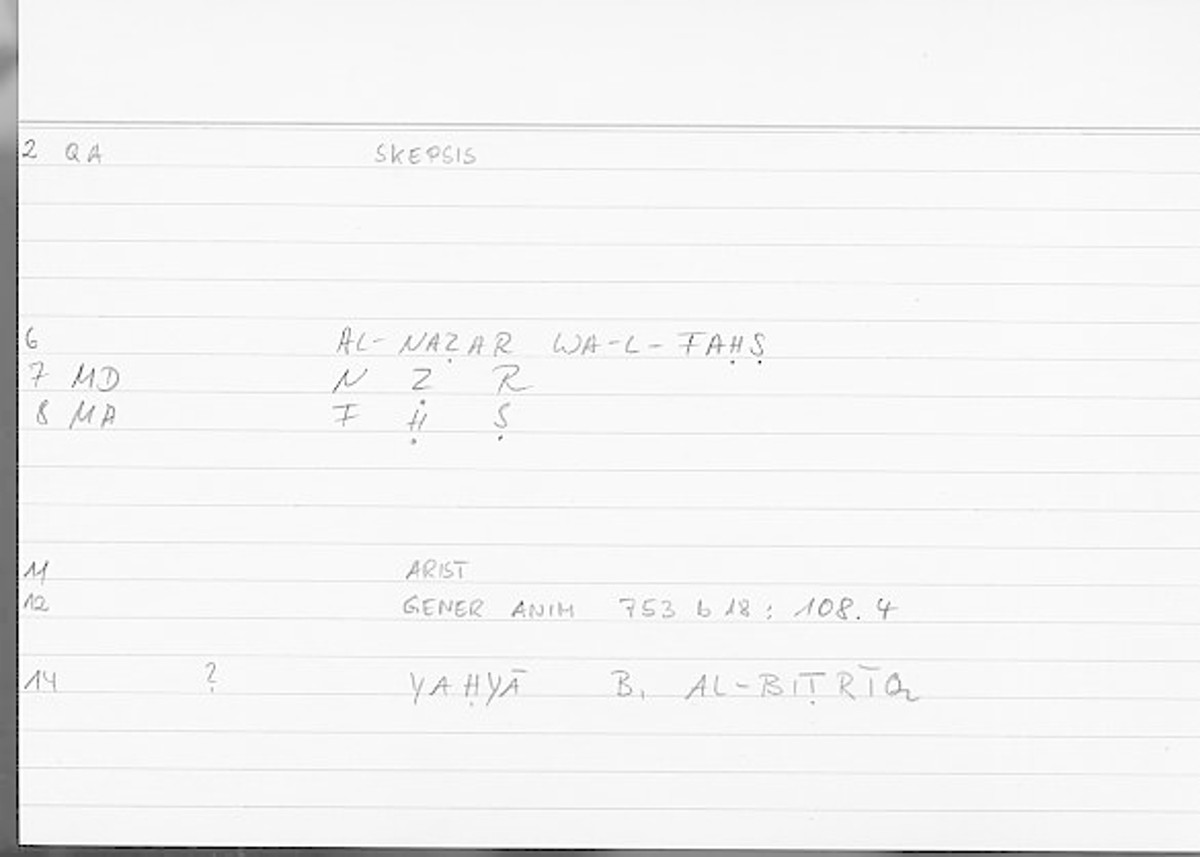 2 QA SKEPSIS
6 AL-NAẒAR WA-L-FAḤṢ
7 MD N Ẓ R
8 MA F Ḥ Ṣ
11 ARIST
12 GENER ANIM 753 b 18 : 108.4
14 ? YAḤYĀ B. AL-BIṬRĪQ